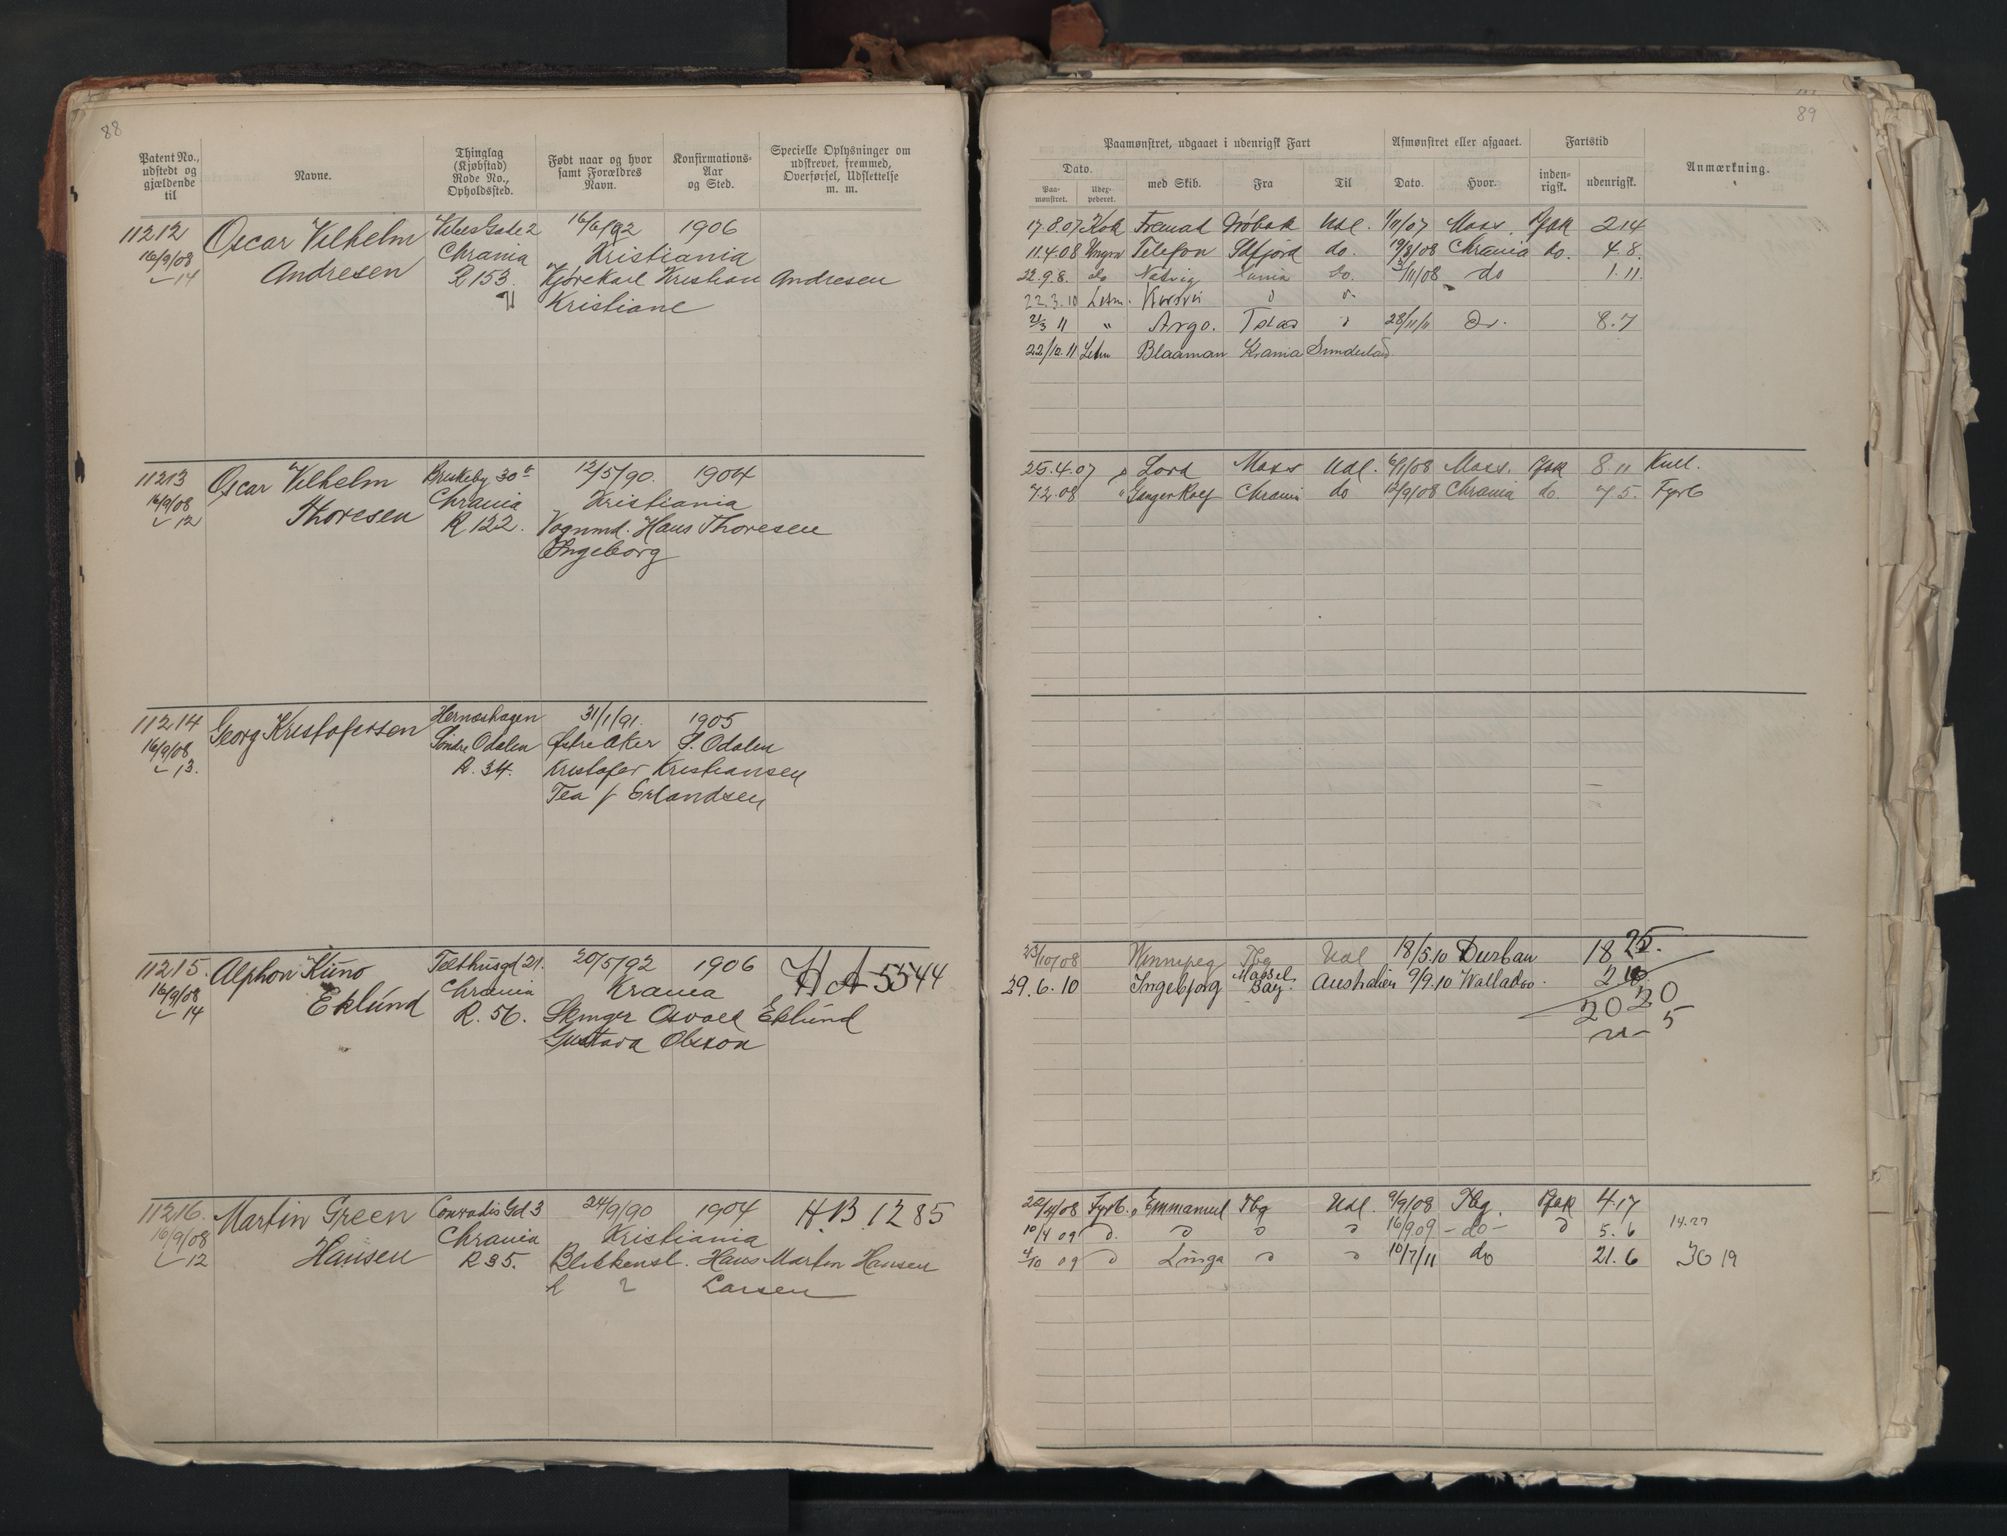 88
Patent No., udstedt og gjældende til
Navne.
Thinglag (Kjøbstad) Rode No., Opholdssted.
Født naar og hvor samt Forældres Navn.
Konfirmations-Aar og Sted.
Specielle Oplysninger om udskrevet, fremmed, Overførsel, Udslettelse m. m.
11212 Oscar Vilhelm 16/6/92 1906
16/9/08 Andresen Chrania Kristiania
14 R 153. Kjørekarl Kristian Andresen
Kristiane
11213 Oscar Vilhelm Briskeby 30 12/5/90. 1904
16/9/08 Thoresen Chrania Kristiania
12 R 122. Vognmd. Hans Thoresen
Ingeborg
11214 Georg Kristofersen Hernæshagen 31/1/91. 1905
16/9/08 Søndre Odalen Østre Aker S. Odalen
13. R. 34. Kristofer Kristiansen
Tea f Erlandsen
11215. Alphon Kuno Telthusgd 21. 20/5/92 1906 H A 5544
16/9/08 Eklund Chrania Krania
14 R. 56. Osvald Eklund
Gustava Olsson
11216. Martin Green Conradis Gd 3 24/9/90 1904 H.B. 1285
16/9/08 Hansen Chrania Kristiania
12 R 35. Blikkensl. Hans Martin Hansen
Larsen
89
Paamønstret, udgaaet i udenrigsk Fart
Afmønstret eller afgaaet.
Fartstid
Anmærkning.
Dato.
Paa-mønstret.
Udex-pederet.
med Skib.
Fra
Til
Dato.
Hvor.
inden-rigsk.
udenrigsk.
17.8.07 Kok Fremad Drøbak Udl. 1/11/07 Moss. 214
11.4.08 Telefon do. 19/8/08 Chrania do. 4.8.
22.9.8. do do. /11/08 do 1.11.
22.3.10 Letm.
21/3 11 " Argo. 28/11/11 Do. 8.7
22/10.11 Letm Blaaman Krania Sunderland
25.4.07 Lord Moss Udl. 6/1/08 Moss. 8 11 Kull.
7.2.08 " Ganger Rolf Chrania do 12/9/08 Chrania do. 7 5. Fyrb
23/10/08 Winnipeg Fbg Udl 18/5.10 Durban 18 25.
29.6.10 Ingebjorg Mossel Bay. Australien 9/9.10 Wallaroo. 2
20 20
5
Fyrb. Emmanuel Fbg Udl 9/9/08 Fbg. 4 17
10/4 09 16/9 09 - do - 5.6 14.27
4/10 09 Linga 10/7/11 do 21.6 30 19